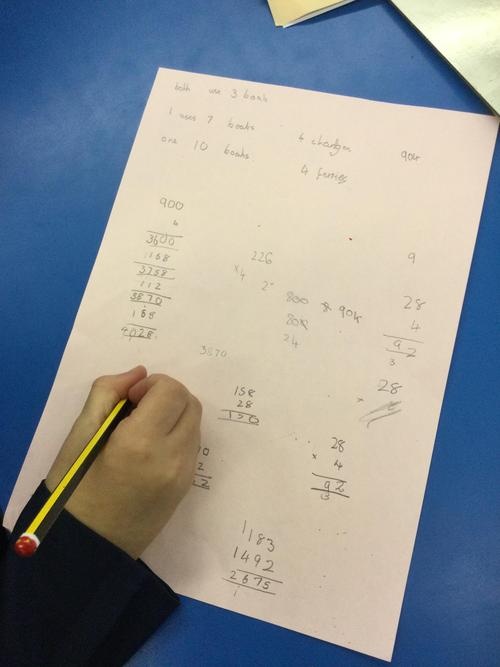 both use 3 boats
1 uses 7 boats 4 changes 90k
one 10 boats 4 ferries
900
4
3600
158
3758
112
3870
158
4028
226
x4
2
800 90k
80k
24
9
28
4
92
3
28
x
3870
158
28
150
28
x 4
92
3
0
2
2
1183
1492
2675
1